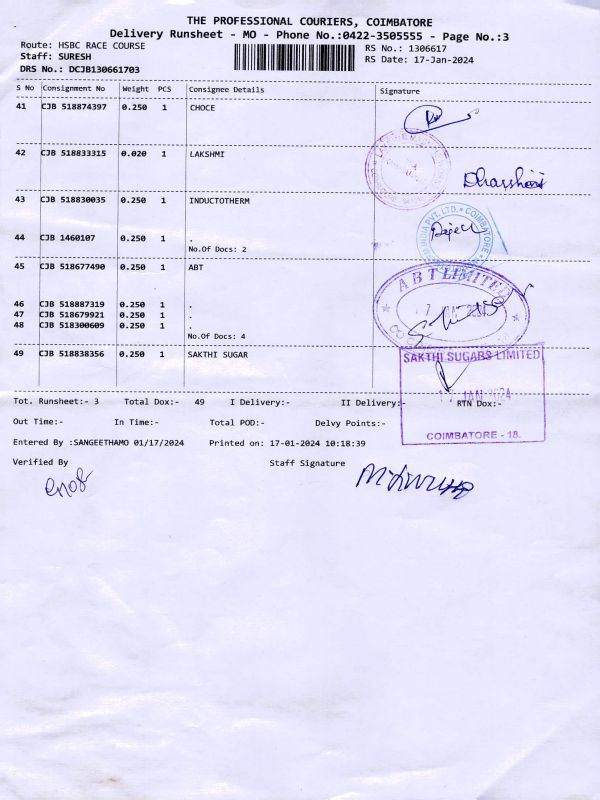 THE PROFESSIONAL COURIERS, COIMBATORE
Delivery Runsheet - MO - Phone No.:0422-3505555 - Page No.:3
Route: HSBC RACE COURSE
RS No.: 1306617
Staff: SURESH
RS Date: 17-Jan-2024
DRS No.: DCJB130661703
S No Consignment No Weight PCS Consignee Details Signature
41 CJB 518874397 0.250 1 CHOCE
42 CJB 518833315 0.020 1 LAKSHMI
Dharshini
43 CJB 518830035 0.250 1 INDUCTOTHERM
44 CJB 1460107 0.250 1 .
No.Of Docs: 2
INDIA PVT. LTD. * COIMBATORE
45 CJB 518677490 0.250 1 ABT
ABT LIMITED
46 CJB 518887319 0.250 1 .
47 CJB 518679921 0.250 1 .
48 CJB 518300609 0.250 1 .
No.Of Docs: 4
49 CJB 518838356 0.250 1 SAKTHI SUGAR
SAKTHI SUGARS LIMITED
JAN 2024
COIMBATORE - 18.
Tot. Runsheet:- 3 Total Dox:- 49 I Delivery:- II Delivery:- RTN Dox:-
Out Time:- In Time:- Total POD:- Delvy Points:-
Entered By :SANGEETHAMO 01/17/2024 Printed on: 17-01-2024 10:18:39
Verified By Staff Signature